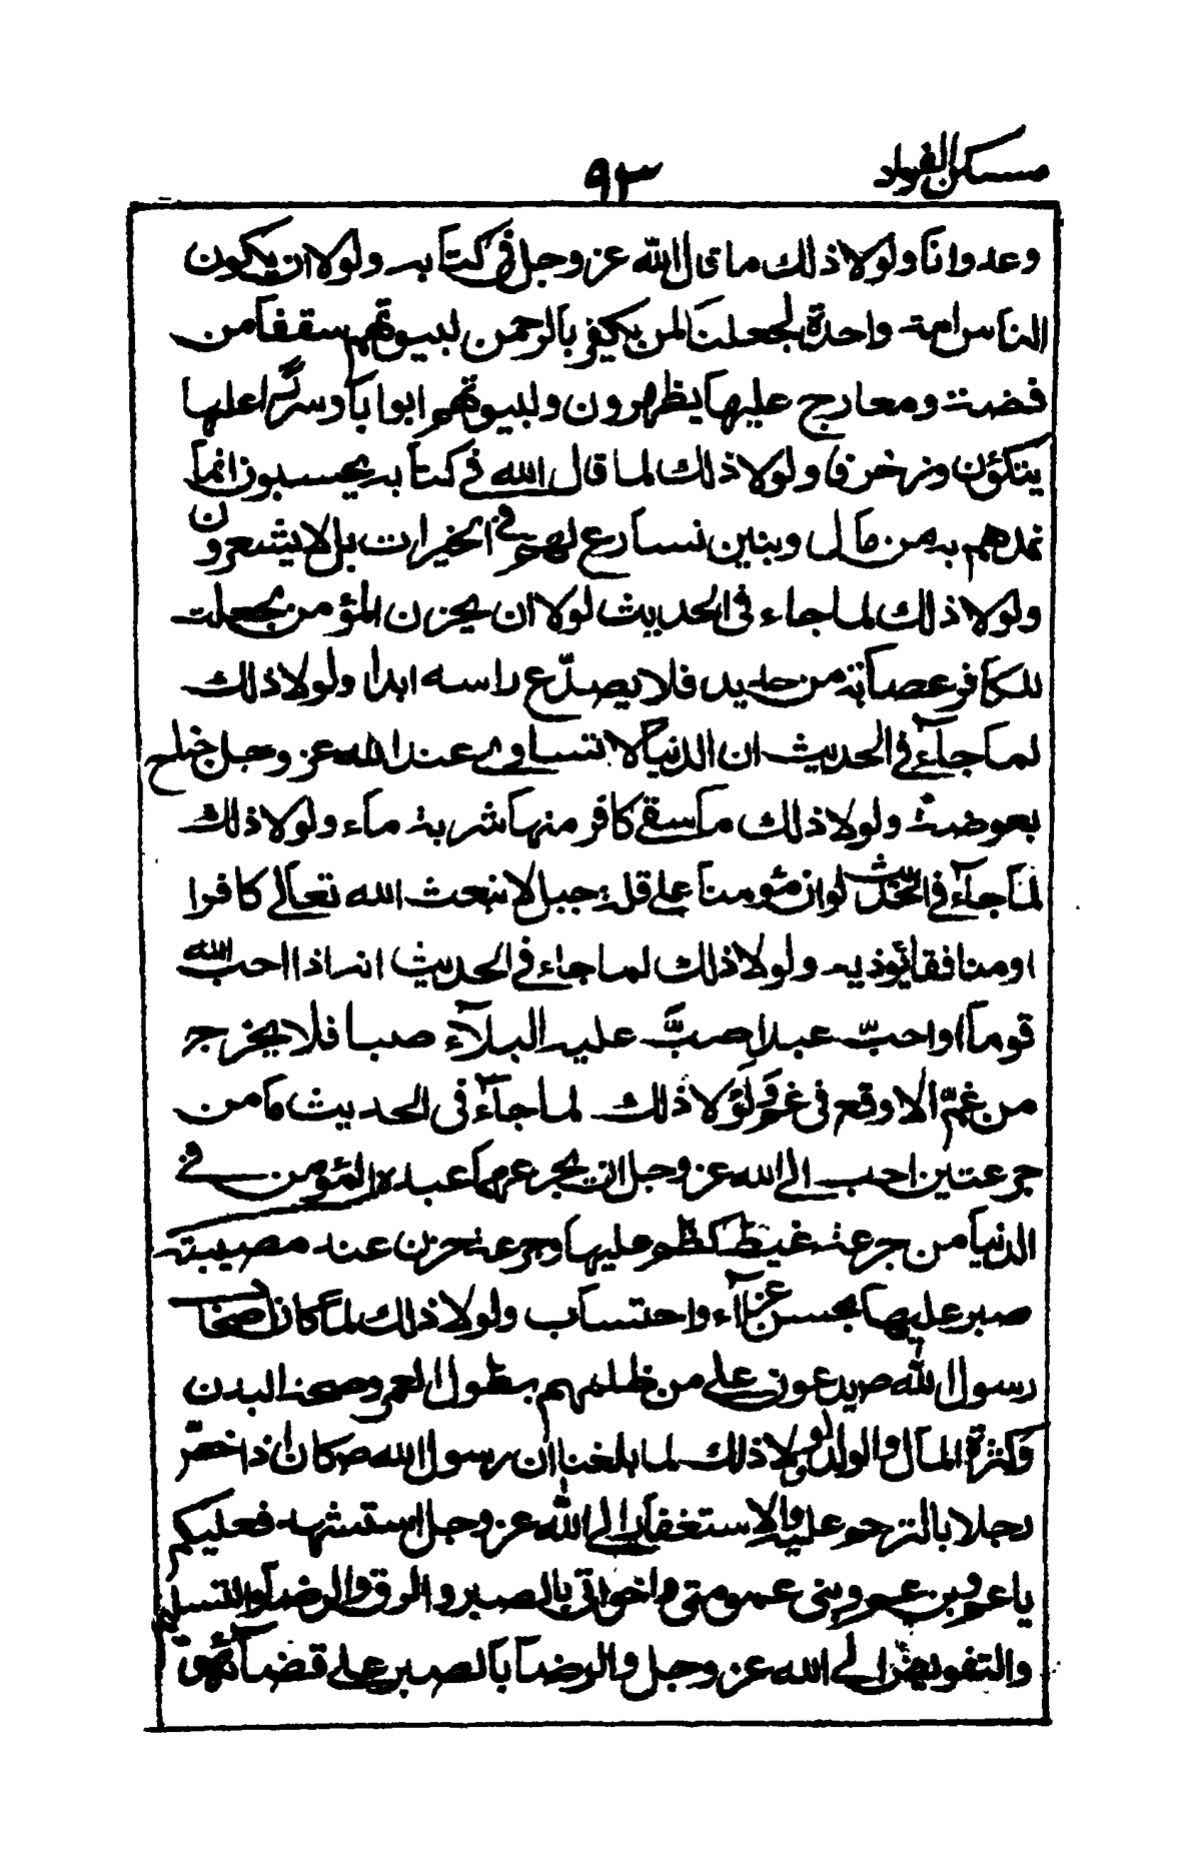 مسكن الفؤاد
٩٣
وعدوانا ولولا ذلك ما قال الله عز وجل في كتابه ولولا ان يكون
الناس امة واحدة لجعلنا لمن يكفر بالرحمن لبيوتهم سقفا من
فضة ومعارج عليها يظهرون ولبيوتهم ابوابا وسررا عليها
يتكؤن وزخرفا ولولا ذلك لما قال الله في كتابه يحسبون انما
نمدهم به من مال وبنين نسارع لهم في الخيرات بل لا يشعرون
ولولا ذلك لما جاء في الحديث لولا ان يحزن المؤمن لجعلت
للكافر عصابة من حديد فلا يصدّع راسه ابدا ولولا ذلك
لما جآء في الحديث ان الدنيا لا تساوي عند الله عز وجل جناح
بعوضة ولولا ذلك ما سقى كافر منها شربة ماء ولولا ذلك
لما جآء في الحديث لو ان مؤمنا على قلة جبل لانبعث الله تعالى كافرا
او منافقا يؤذيه ولولا ذلك لما جاء في الحديث انه اذا احب الله
قوما او احبّ عبدا صبَّ عليه البلآء صبا فلا يخرج
من غمّ الا وقع في غم ولولا ذلك لما جآء في الحديث ما من
جرعتين احب الى الله عز وجل ان يجرعهما عبده المؤمن في
الدنيا من جرعة غيظ كظم عليها وجرعة حزن عند مصيبته
صبر عليها بحسن عزآء واحتساب ولولا ذلك لما كان اصحاب
رسول الله ص يدعون على من ظلمهم بطول العمر وصحة البدن
وكثرة المال والولد ولولا ذلك لما بلغنا ان رسول الله ص كان اذا خصّ
رجلا بالترحم عليه والاستغفار الى الله عز وجل استشهد فعليكم
يا عم وبن عم وبنى عمومتى واخوانى بالصبر والرق والرضا والتسليم
والتفويض الى الله عز وجل والرضا بالصبر على قضآئه